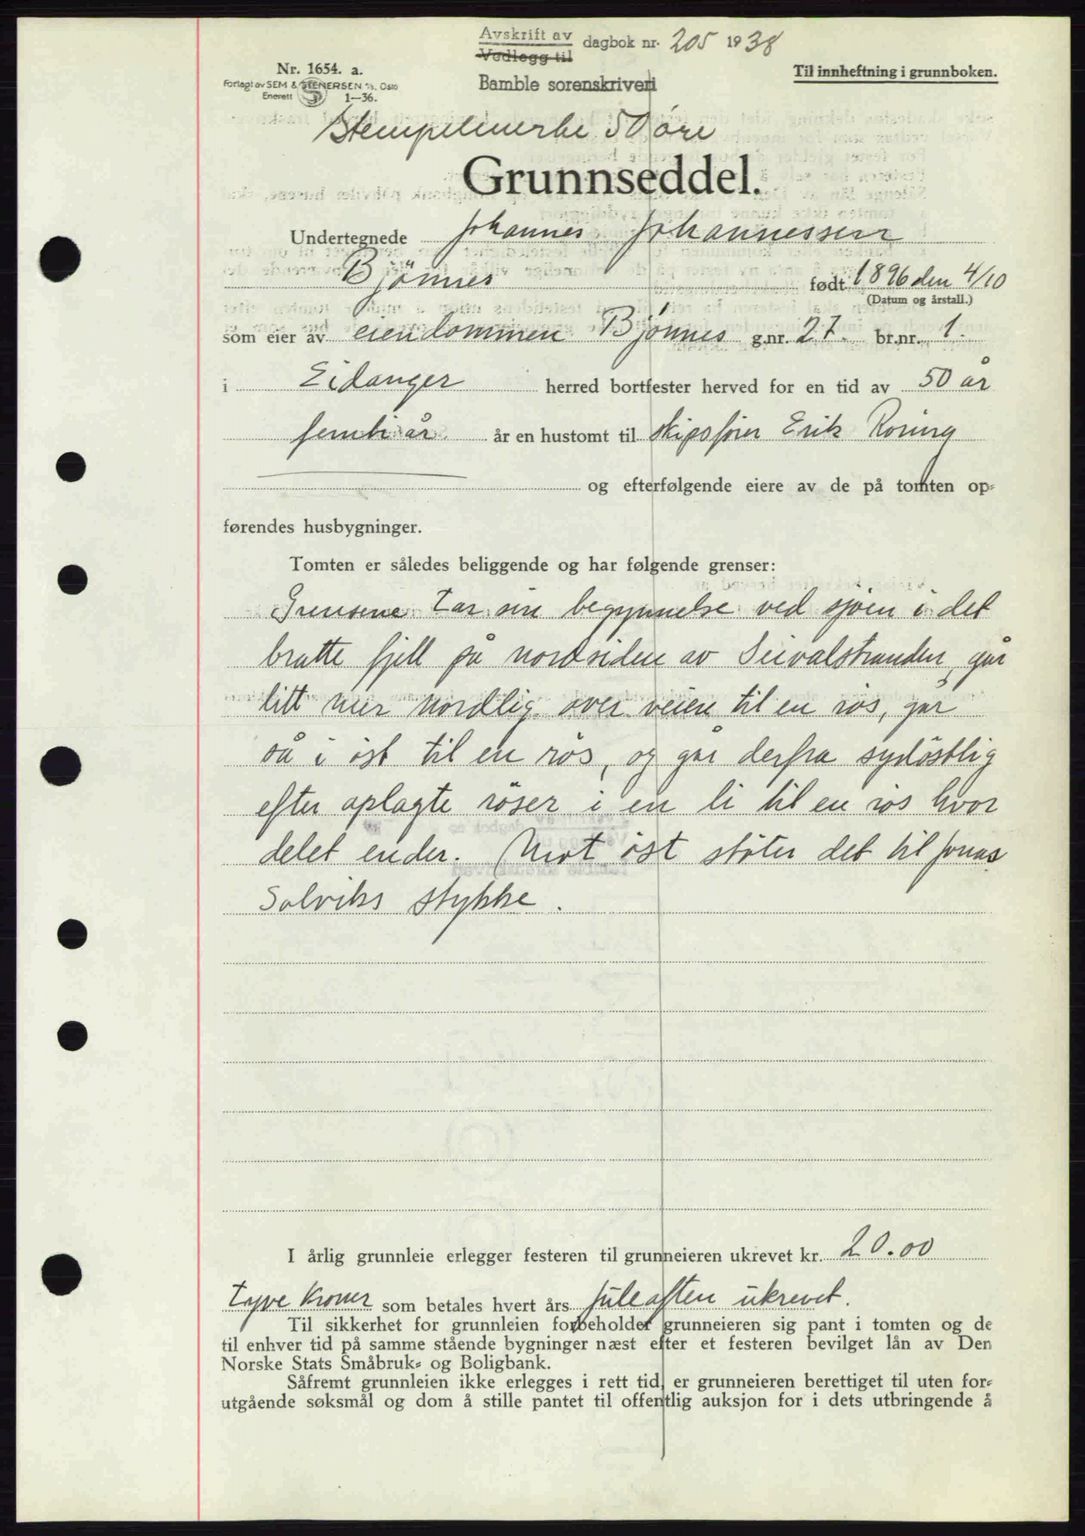 Avskrift av
Vedlegg til
dagbok nr. 205 1938
Bamble sorenskriveri
Nr. 1654. a.
Forlagt av SEM & STENERSEN A/S, Oslo
Enerett 1—36.
Til innheftning i grunnboken.
Stempelmerke 50 øre
Grunnseddel.
Undertegnede Johannes Johannessen
Bjønnes født 1896 den 4/10
(Datum og årstall.)
som eier av eiendommen Bjønnes g.nr. 27. br.nr. 1.
i Eidanger herred bortfester herved for en tid av 50 år
femti år år en hustomt til skipsfører Erik Roning
og efterfølgende eiere av de på tomten op-
førendes husbygninger.
Tomten er således beliggende og har følgende grenser:
Grensene tar sin begynnelse ved sjøen i det
bratte fjell på nordsiden av Seivalstranden, går
litt mer nordlig over veien til en røs, går
så i øst til en røs, og går derfra sydøstlig
efter oplagte røser i en li til en røs hvor
delet ender. Mot øst støter det til Jonas
Solviks stykke.
I årlig grunnleie erlegger festeren til grunneieren ukrevet kr. 20.00
tyve kroner som betales hvert års juleaften ukrevet.
Til sikkerhet for grunnleien forbeholder grunneieren sig pant i tomten og de
til enhver tid på samme stående bygninger næst efter et festeren bevilget lån av Den
Norske Stats Småbruk- og Boligbank.
Såfremt grunnleien ikke erlegges i rett tid, er grunneieren berettiget til uten for-
utgående søksmål og dom å stille pantet til offentlig auksjon for i dets utbringende å